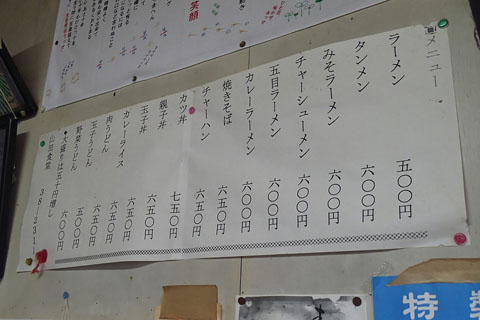 メニュー
ラーメン 五〇〇円
タンメン 六〇〇円
みそラーメン 六〇〇円
チャーシューメン 六〇〇円
五目ラーメン 六〇〇円
カレーラーメン 六〇〇円
焼きそば 六五〇円
チャーハン 六五〇円
カツ丼 七五〇円
親子丼 六五〇円
玉子丼 六五〇円
カレーライス 六五〇円
肉うどん 六五〇円
玉子うどん 五〇〇円
野菜うどん 六〇〇円
◆大盛りは五十円増し
食堂
笑顔
特